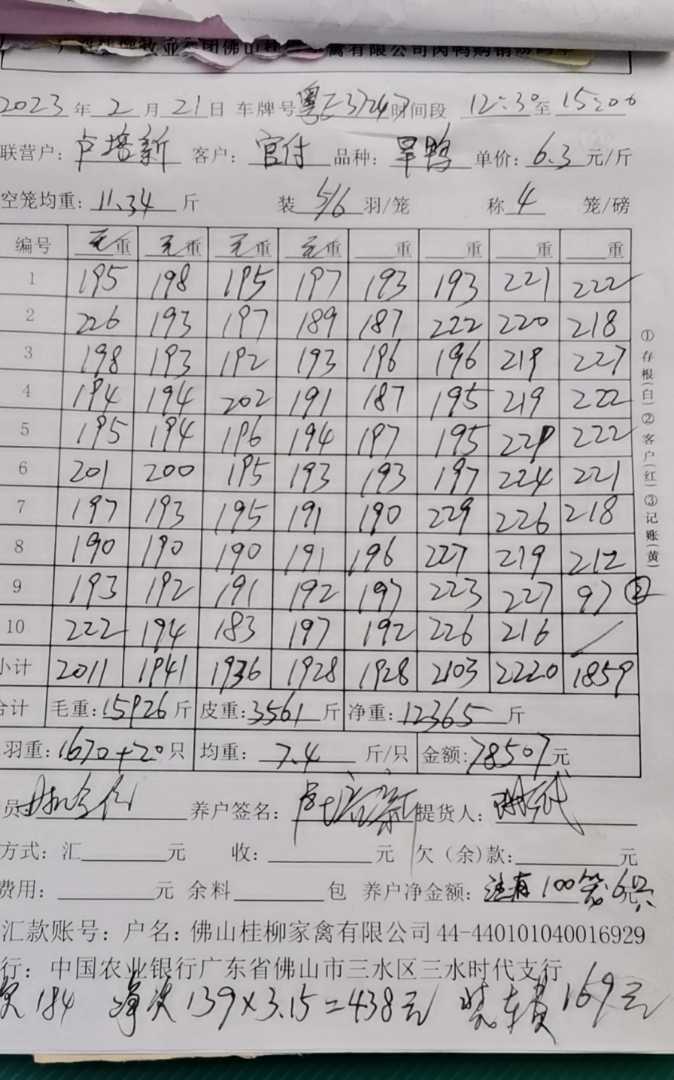 佛山桂 禽有限公司肉鸭购销
2023年2月21日 车牌号粤E37247时间段 12:30至15:00
联营户:卢培新 客户:官付 品种:旱鸭 单价:6.3元/斤
空笼均重:11.34斤 装5/6羽/笼 称4笼/磅
编号 毛重 毛重 毛重 毛重 重 重 重 重
1 195 198 195 197 193 193 221 222
2 226 193 197 189 187 222 220 218
3 198 193 192 193 196 196 219 227
4 194 194 202 191 187 195 219 222
5 195 194 196 194 197 195 229 222
6 201 200 195 193 193 197 224 221
7 197 193 195 191 190 229 226 218
8 190 190 190 191 196 227 219 212
9 193 192 191 192 197 223 227 97 ②
10 222 194 183 197 192 226 216 /
小计 2011 1941 1936 1928 1928 2103 2220 1859
合计 毛重:15926斤 皮重:3561斤 净重:12365斤
羽重:1670+20只 均重:7.4斤/只 金额:78507元
员 养户签名:卢培新 提货人:
方式:汇 元 收: 元 欠(余)款: 元
费用: 元 余料 包 养户净金额:注有100笼6只
汇款账号:户名:佛山桂柳家禽有限公司44-440101040016929
行:中国农业银行广东省佛山市三水区三水时代支行
184 139×3.15=438元 车费169元
①存根(白)②客户(红)③记账(黄)